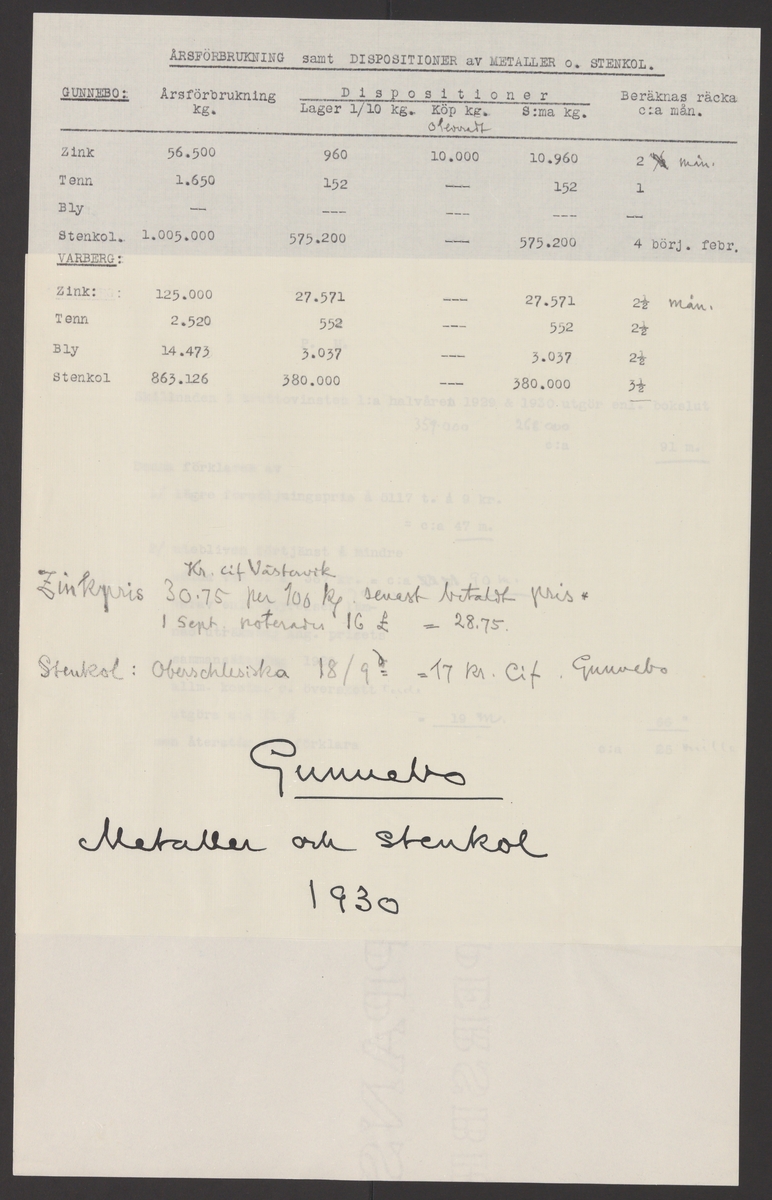 ÅRSFÖRBRUKNING samt DISPOSITIONER av METALLER o. STENKOL.
GUNNEBO: Årsförbrukning Dispositioner Beräknas räcka
kg. Lager 1/10 kg. Köp kg. S:ma kg. c:a mån.
Zink 56.500 960 10.000 10.960 2 mån.
Tenn 1.650 152 --- 152 1
Bly -- --- --- --- --
Stenkol. 1.005.000 575.200 --- 575.200 4 börj. febr.
VARBERG:
Zink: : 125.000 27.571 --- 27.571 2½ mån.
Tenn 2.520 552 --- 552 2½
Bly 14.473 3.037 --- 3.037 2½
Stenkol 863.126 380.000 --- 380.000 3½
Kr. cif Västervik
Zinkpris 30.75 per 100 kg. senast betalat pris
1 Sept. noterades 16 £ = 28.75.
Stenkol: Oberschlesiska 18/9 d = 17 kr. Cif. Gunnebo
Gunnebo
Metaller och stenkol
1930